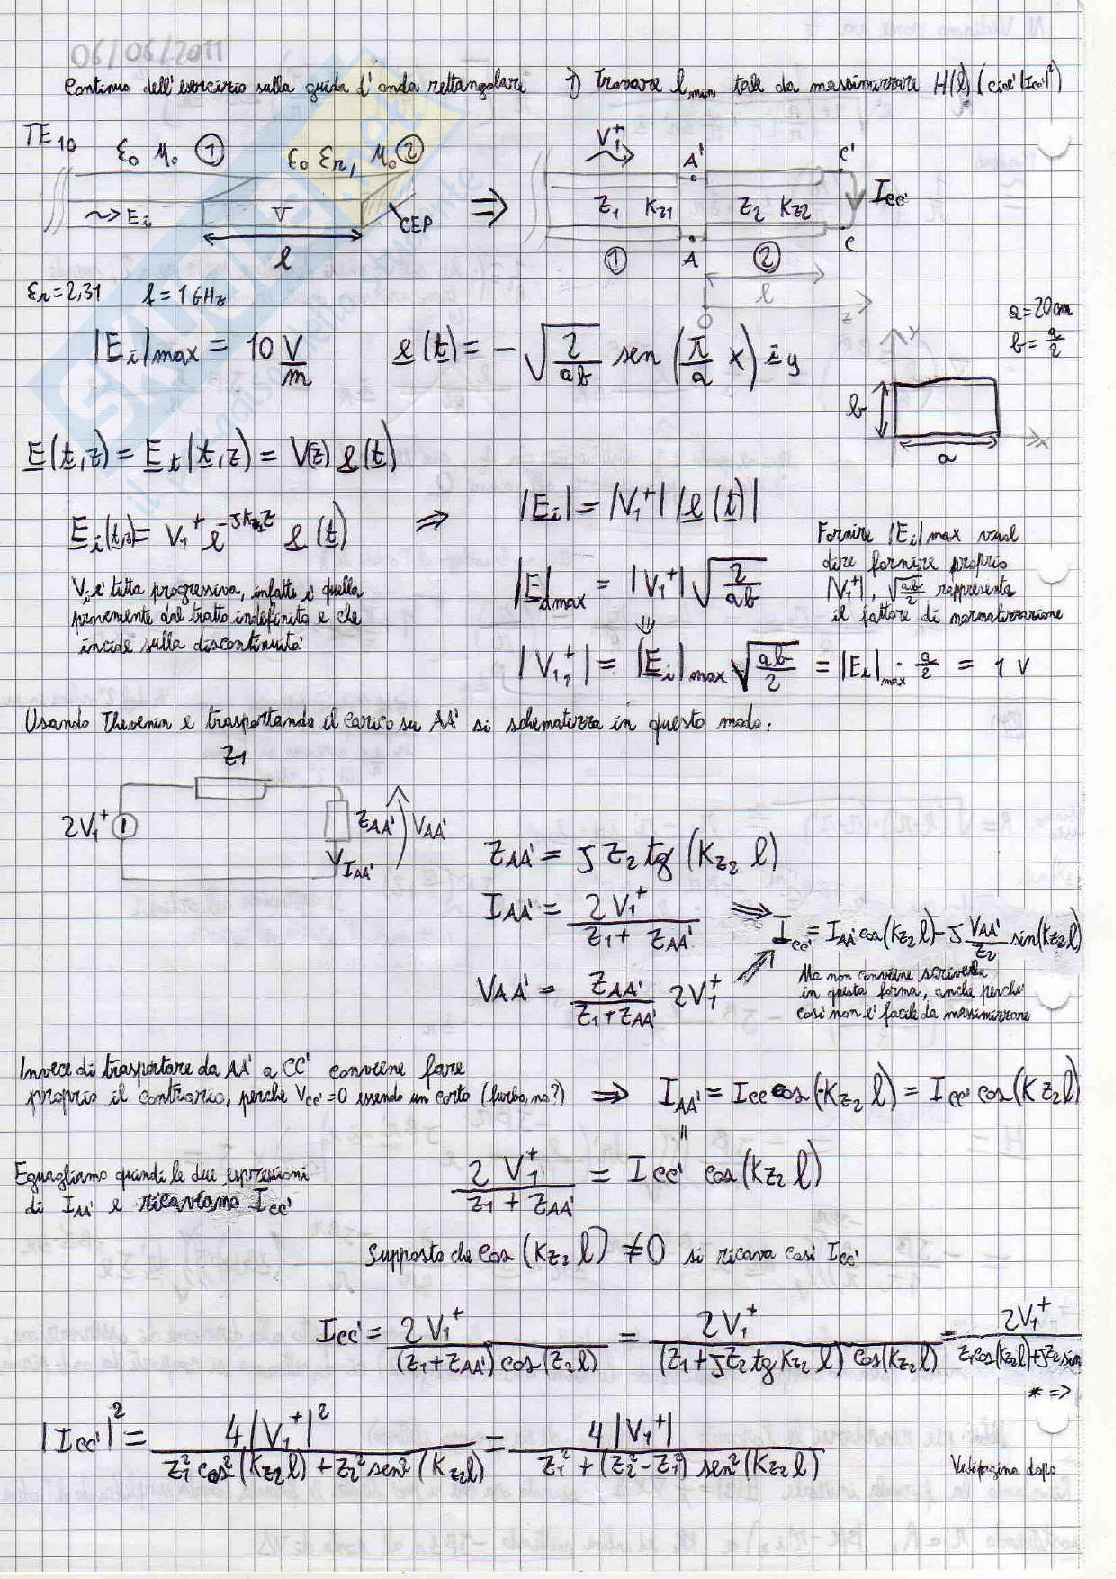 06/06/2011
Continuo dell'esercizio sulla guida d'onda rettangolare 1) Trovare l_min tale da massimizzare H(l) (cioè |Icc'|²)
TE10
ε0 μ0 ① ε0 εr, μ0 ②
V1+
A' C'
~> Ei
V
CEP
⇒
Z1 Kz1 Z2 Kz2
Icc'
① A ② C
l
l
0 z
εr = 2,31 f = 1 GHz
a = 20 cm
b = a/2
|Ei|max = 10 V/m e(t) = -√(2/ab) sen(π/a x) iy
y
b
a
x
E(t,z) = Et(t,z) = V(z) e(t)
Ei(t,z) = V1+ e^(-jKz1z) e(t) ⇒ |Ei| = |V1+| |e(t)|
Fornire |Ei|max vuol
dire fornire proprio
|V1+|, √(ab/2) rappresenta
il fattore di normalizzazione
|Ei|max = |V1+| √(2/ab)
Vi è tutta progressiva, infatti è quella
proveniente dal tratto indefinito e che
incide sulla discontinuità
⇓
|V1+| = |Ei|max √(ab/2) = |Ei|max · a/2 = 1 V
Usando Thevenin e trasportando il carico su AA' si schematizza in questo modo.
Z1
2V1+
ZAA' VAA'
IAA'
ZAA' = j Z2 tg (Kz2 l)
IAA' = 2V1+ / (Z1 + ZAA') ⇒ Icc' = IAA' cos(Kz2 l) - j VAA'/Z2 sin(Kz2 l)
VAA' = ZAA' / (Z1 + ZAA') 2V1+
Ma non conviene scriverla
in questa forma, anche perché
così non è facile da massimizzare
Invece di trasportare da AA' a CC' conviene fare
proprio il contrario, perché Vcc' = 0 essendo un corto (furbo, no?) ⇒ IAA' = Icc' cos(-Kz2 l) = Icc' cos(Kz2 l)
=
Eguagliamo quindi le due espressioni
di IAA' e ricaviamo Icc'
2V1+ / (Z1 + ZAA') = Icc' cos(Kz2 l)
Supposto che cos(Kz2 l) ≠ 0 si ricava così Icc'
Icc' = 2V1+ / ((Z1 + ZAA') cos(Z2 l)) = 2V1+ / ((Z1 + jZ2 tg Kz2 l) cos(Kz2 l)) = 2V1+ / (Z1 cos(Kz2 l) + jZ2 sin
* =>
|Icc'|² = 4|V1+|² / (Z1² cos²(Kz2 l) + Z2² sen²(Kz2 l)) = 4|V1+| / (Z1² + (Z2² - Z1²) sen²(Kz2 l))
Vedi pagina dopo